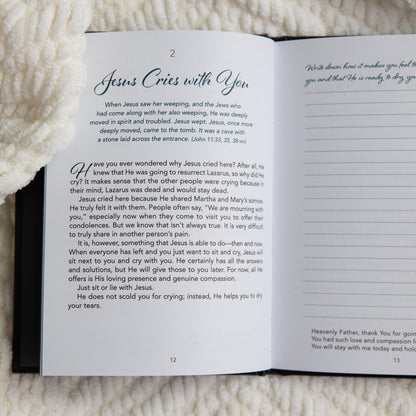 2
Jesus Cries with You
When Jesus saw her weeping, and the Jews who
had come along with her also weeping, He was deeply
moved in spirit and troubled. Jesus wept. Jesus, once more
deeply moved, came to the tomb. It was a cave with
a stone laid across the entrance. (John 11:33, 35, 38 NIV)
Have you ever wondered why Jesus cried here? After all, He
knew that He was going to resurrect Lazarus, so why did He
cry? It makes sense that the other people were crying because in
their mind, Lazarus was dead and would stay dead.
Jesus cried here because He shared Martha and Mary's sorrow.
He truly felt it with them. People often say, "We are mourning with
you," especially now when they come to visit you to offer their
condolences. But we know that isn't always true. It is very difficult
to truly share in another person's pain.
It is, however, something that Jesus is able to do—then and now.
When everyone has left and you just want to sit and cry, Jesus will
sit next to you and cry with you. He certainly has all the answers
and solutions, but He will give those to you later. For now, all He
offers is His loving presence and genuine compassion.
Just sit or lie with Jesus.
He does not scold you for crying; instead, He helps you to dry
your tears.
12
Write down how it makes you feel t
you and that He is ready to dry yo
Heavenly Father, thank You for goin
You had such love and compassion f
You will stay with me today and hol
13